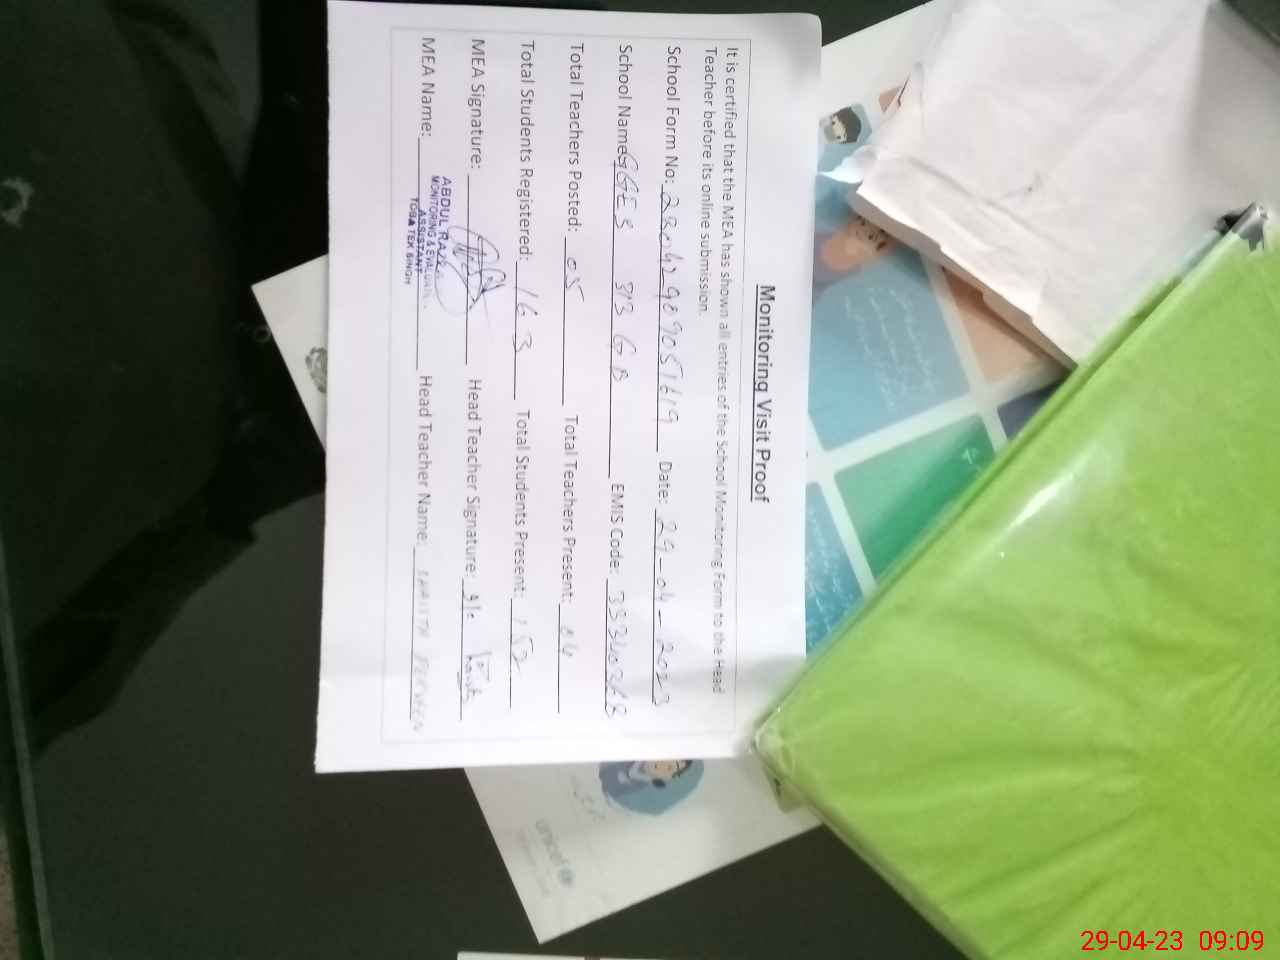 Monitoring Visit Proof
It is certified that the MEA has shown all entries of the School Monitoring Form to the Head
Teacher before its online submission.
School Form No: Date: 29-04-2023
School Name: GGES 313 GB EMIS Code: 33340368
Total Teachers Posted: 05 Total Teachers Present: 04
Total Students Registered: 163 Total Students Present: 152
MEA Signature: Head Teacher Signature:
MEA Name: Head Teacher Name: PERVEEN
ABDUL
MONITORING &
ASSISTANT
TOBA TEK SINGH
unicef
29-04-23 09:09